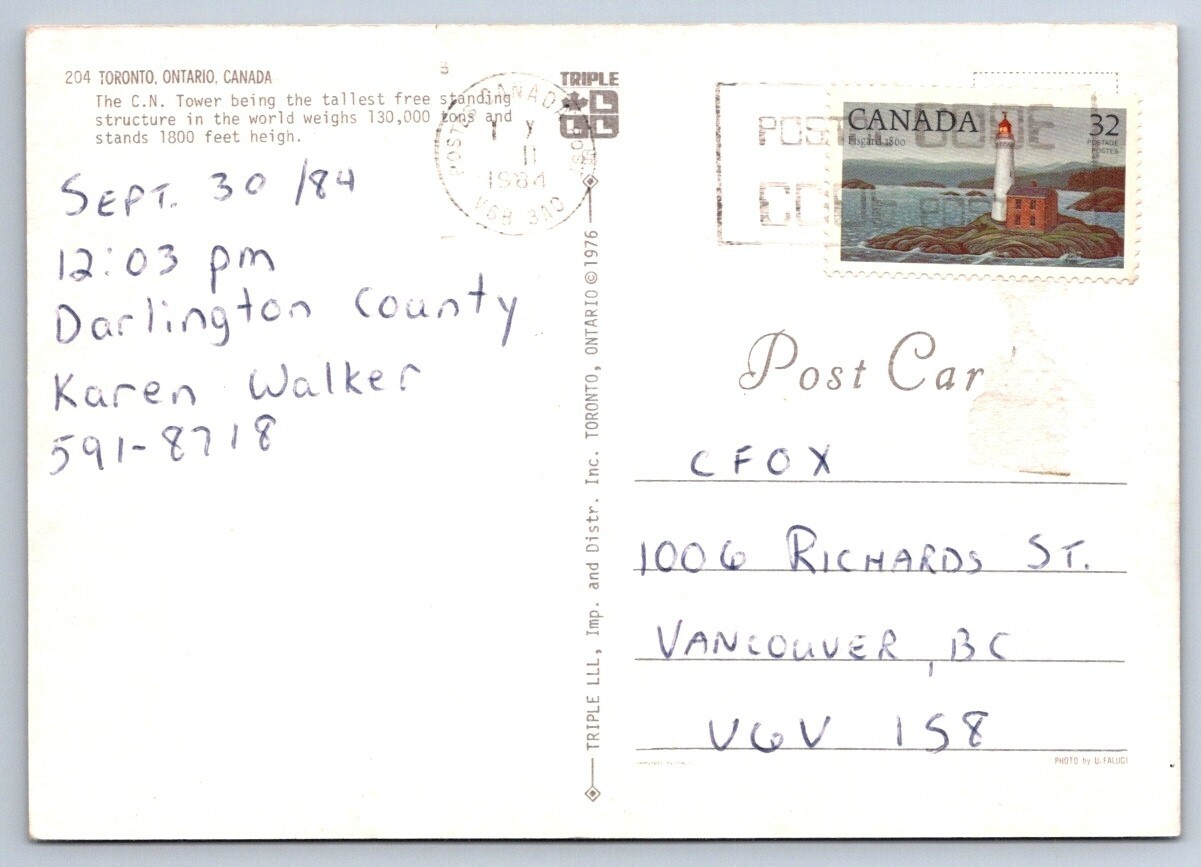 204 TORONTO, ONTARIO, CANADA
The C.N. Tower being the tallest free standing
structure in the world weighs 130,000 tons and
stands 1800 feet heigh.
SEPT. 30 /84
12:03 pm
Darlington County
Karen Walker
591-8718
TRIPLE
LLL
CANADA
POSTES
1984
V6B 3A0
TRIPLE LLL, Imp. and Distr. Inc. TORONTO, ONTARIO ©1976
POSTAL CODE
CODE POSTAL
CANADA
Fisgard 1860
32
POSTAGE
POSTES
Post Car
CFOX
1006 RICHARDS ST.
VANCOUVER, BC
V6V 1S8
PHOTO by U. FALUGI